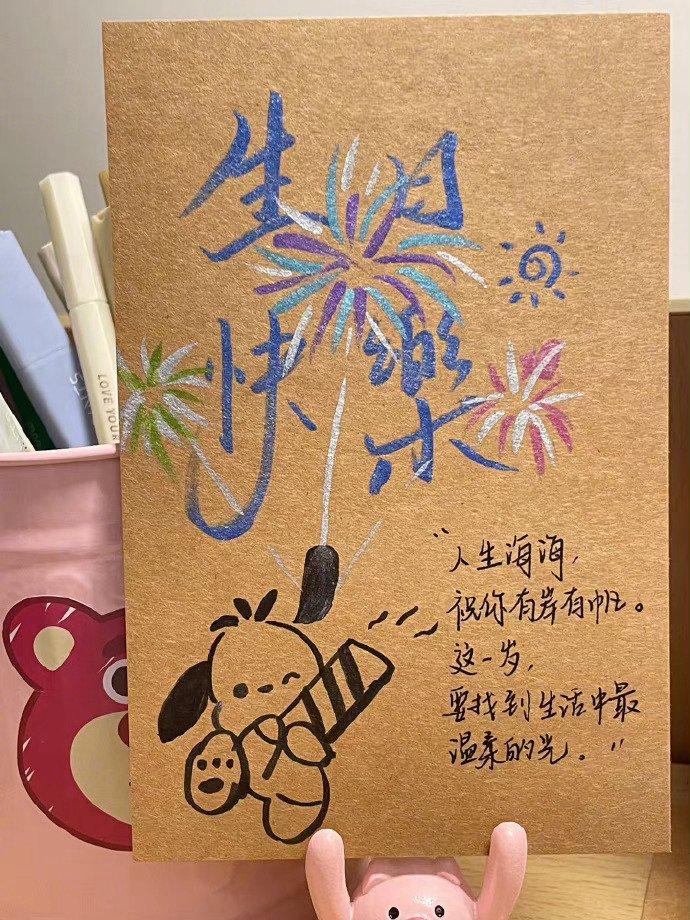 生日
快樂
“人生海海,
祝你有岸有帆。
这一岁,
要找到生活中最
温柔的光。”
LOVE YOUR